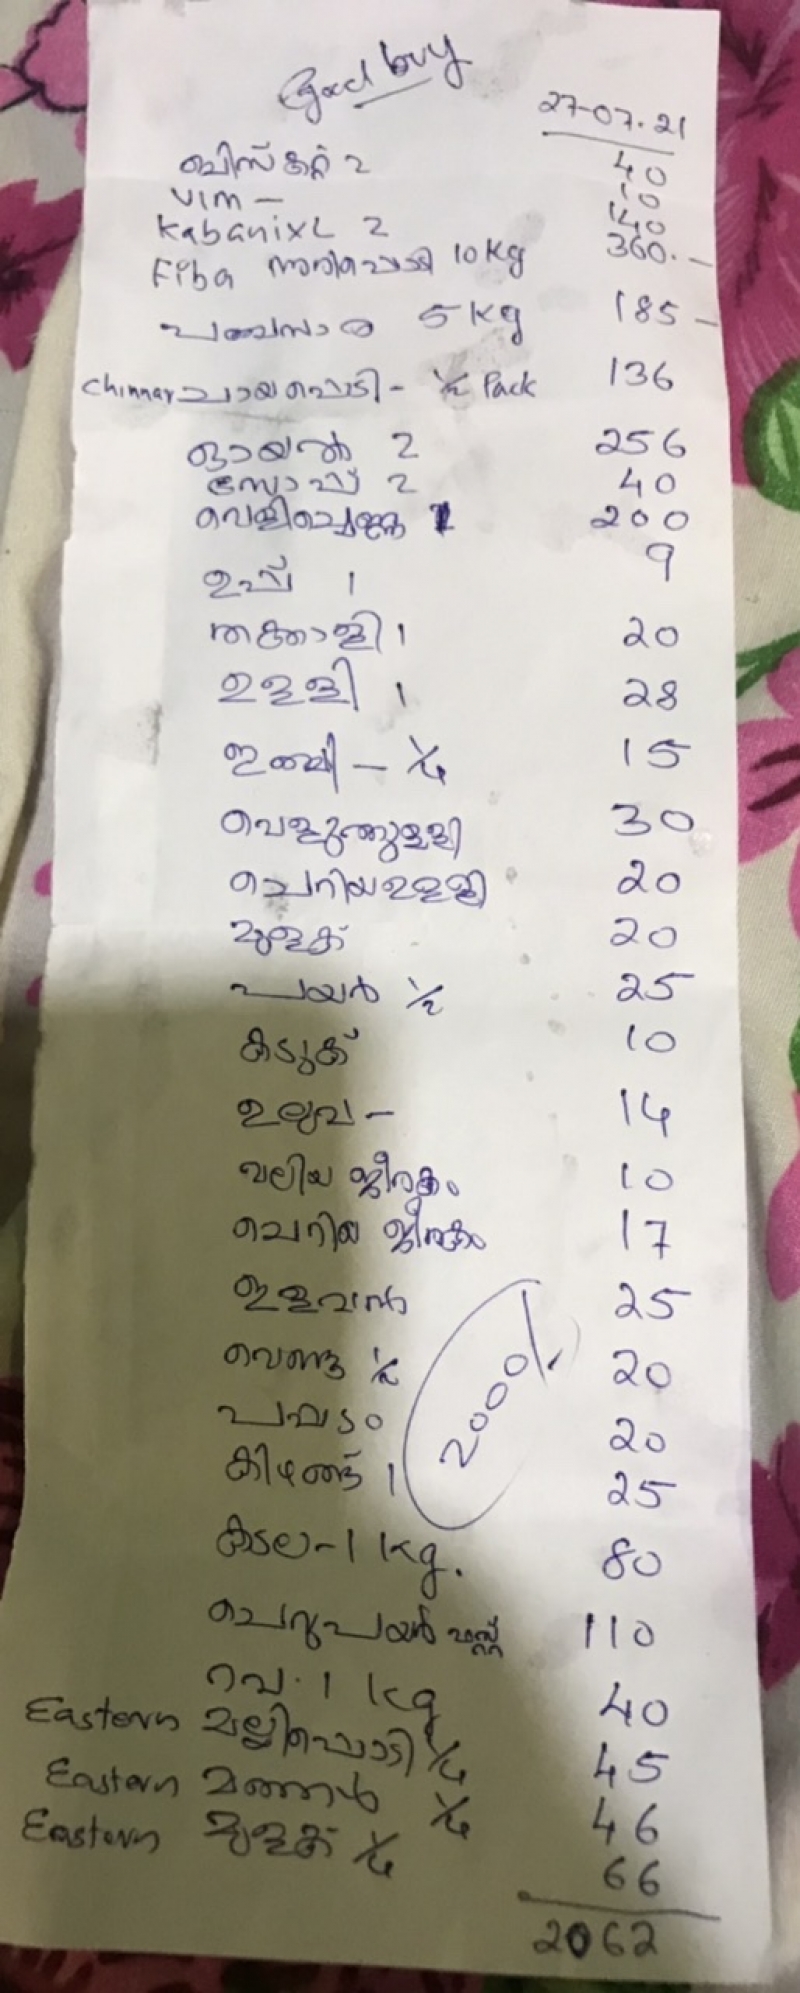 Good buy
27-07-21
ബിസ്കറ്റ് 2 40
VIM - 10
Kabanixl 2 140
Fiba അരിപ്പൊടി 10 Kg 360.-
പഞ്ചസാര 5 Kg 185-
Chinnar ചായപ്പൊടി - ½ Pack 136
ഓയൽ 2 256
സോപ്പ് 2 40
വെളിച്ചെണ്ണ 1 200
ഉപ്പ് 1 9
തക്കാളി 1 20
ഉള്ളി 1 28
ഇഞ്ചി - ¼ 15
വെളുത്തുള്ളി 30
ചെറിയഉള്ളി 20
മുളക് 20
പയർ ½ 25
കടുക് 10
ഉലുവ - 14
വലിയ ജീരകം 10
ചെറിയ ജീരകം 17
ഇളവൻ 25
വെണ്ട ½ 20
പപ്പടം 20
2000/-
കിഴങ്ങ് 1 25
കടല - 1 kg. 80
ചെറുപയർ 110
റവ. 1 kg 40
Eastern മല്ലിപ്പൊടി ¼ 45
Eastern മഞ്ഞൾ ¼ 46
Eastern മുളക് ¼ 66
2062